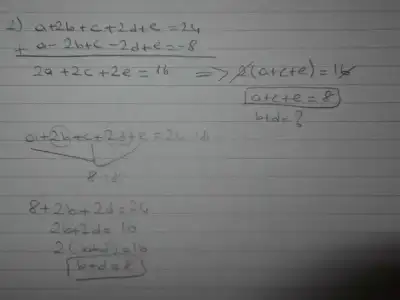 2) a+2b+c+2d+e=24
+ a-2b+c-2d+e=-8
2a+2c+2e=16 => 2(a+c+e)=16
a+c+e=8
b+d=?
a+2b+c+2d+e=24
8
8+2b+2d=24
2b+2d=16
2(b+d)=16
b+d=8